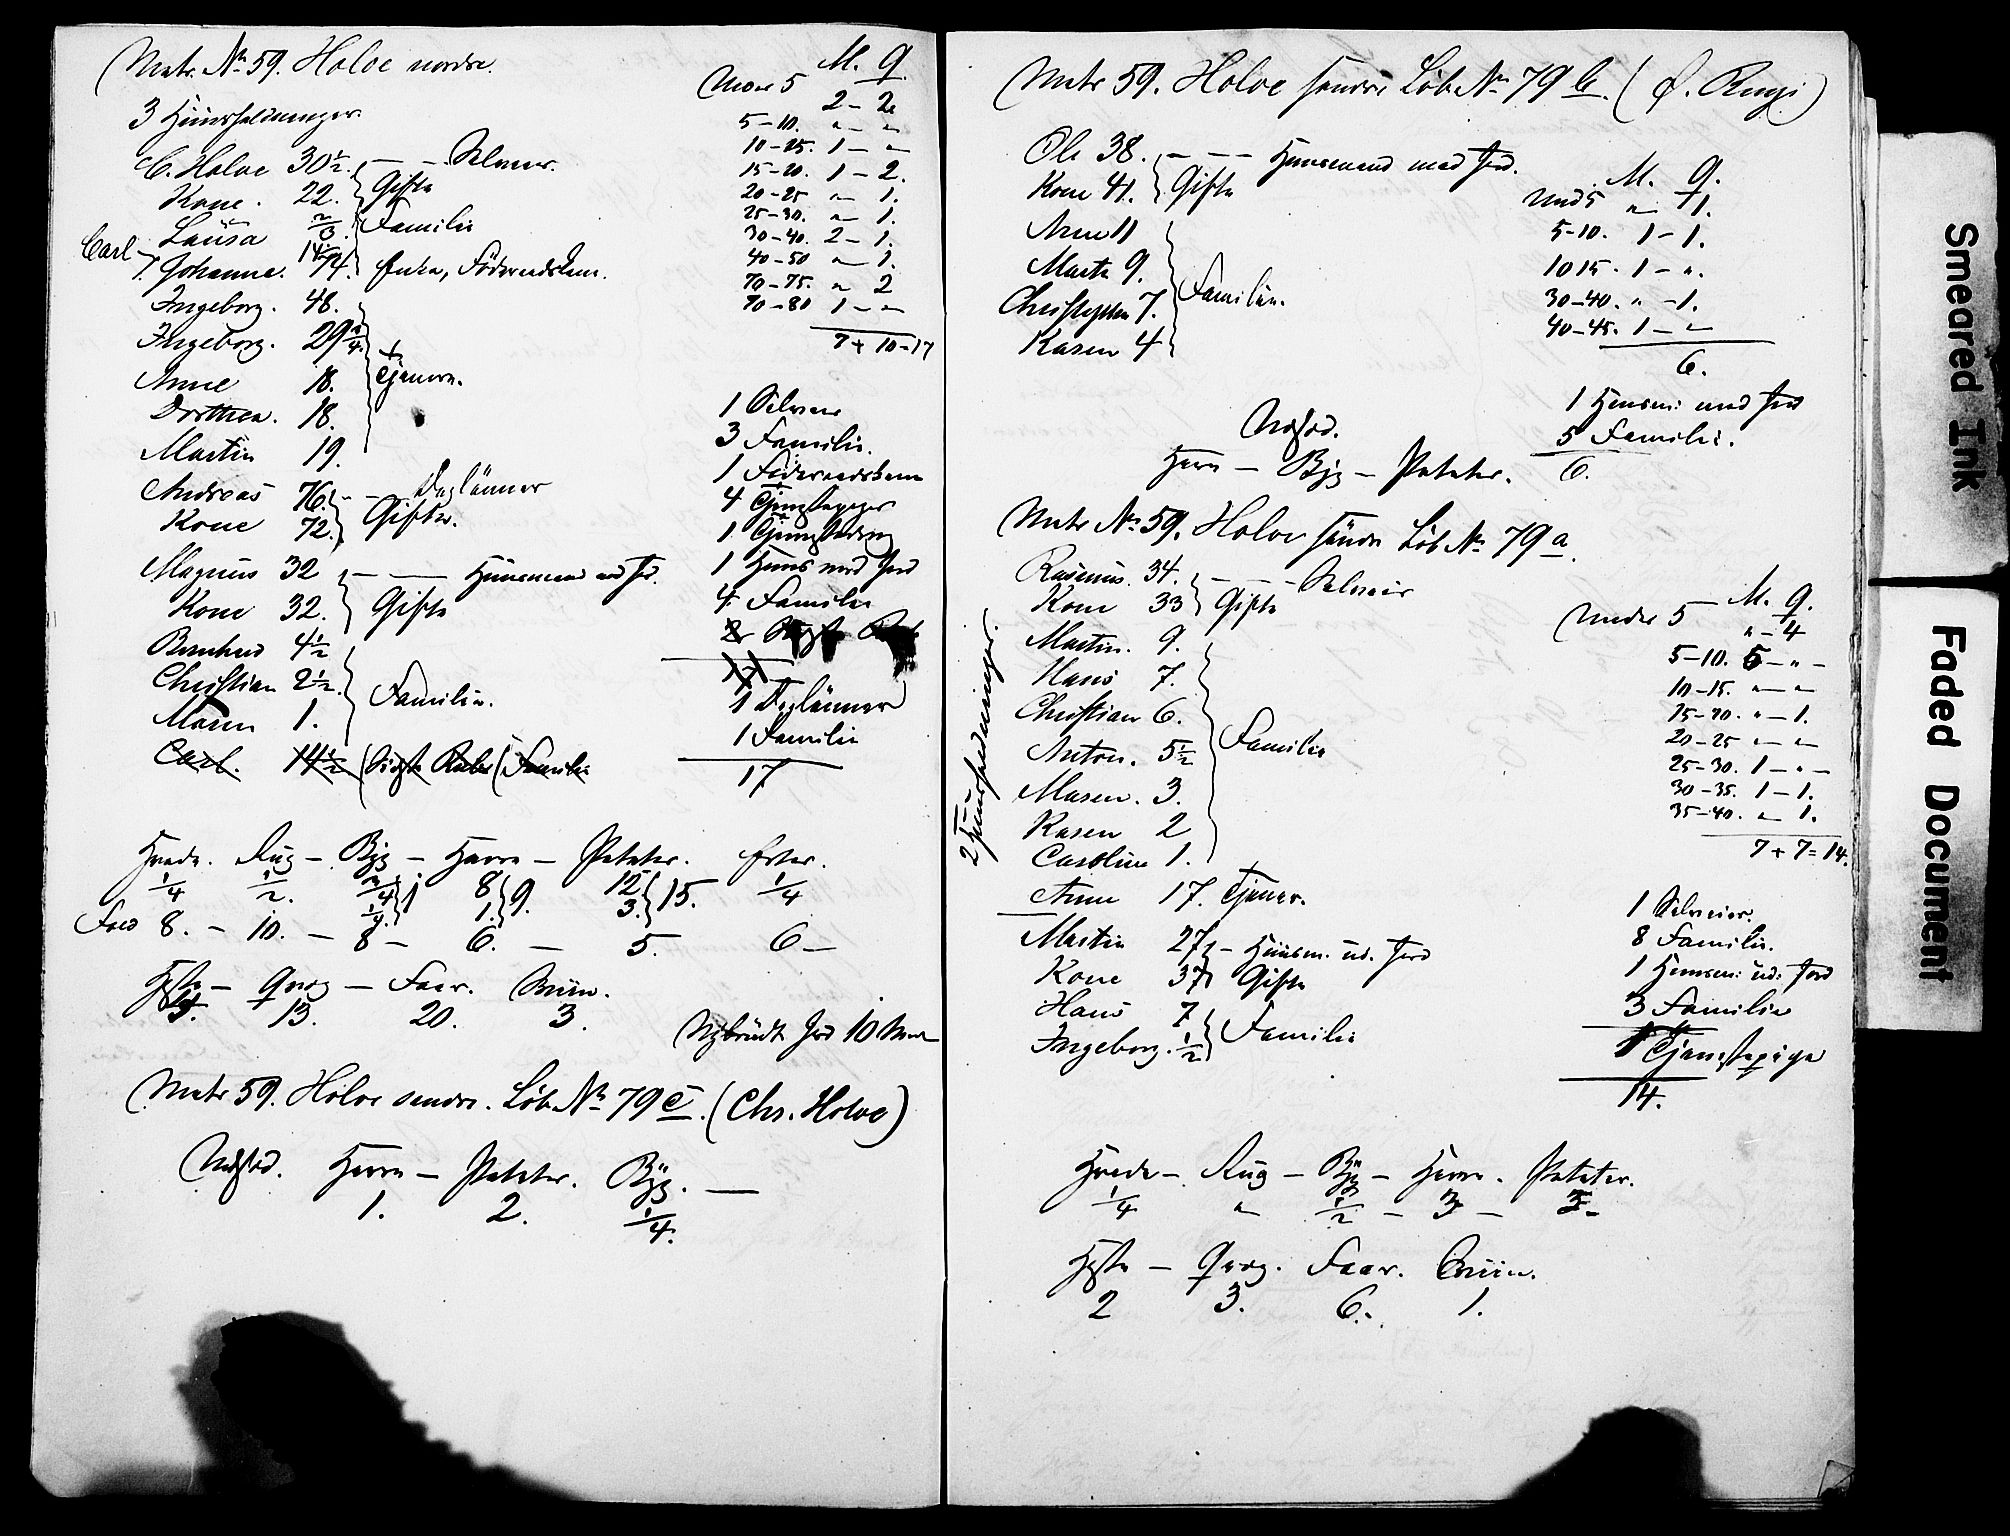 Matr. No 59. Holve nordre.
3 Huusholdninger.
C. Holve 30½ — — Selveier.
Kone. 22. Gifte
Laura 2/3. Familie
Carl 14½
Johanne. 74. Enke, Föderaadskone.
Ingeborg. 48.
Ingeborg. 29 3/4.
Anne 18. Tjenere.
Dorthea. 18.
Martin 19.
Andreas 76. — — Daglönner
Kone 72. Gifte.
Magnus 32 — — Huusmand med Jord.
Kone 32. Gifte
Bernhard 4½
Christian 2½. Familie.
Maren 1.
Carl. 14½ Familie
M. Q.
Under 5 2 — 2
5-10. " — "
10-15. 1 — "
15-20. 1 — 2.
20-25 " — 1.
25-30. " — 1.
30-40. 2 — 1.
40-50 " — 1.
70-75. " 2
70-80 1 — "
7 + 10 = 17
1 Selveier
3 Familie.
1 Föderaadskone
4 Tjenestepiger
1 Tjenestedreng
1 Huusm med Jord
4 Familie
17
1 Daglönner
1 Familie
17
Hvede. Rug — Byg — Havre — Poteter. Erter.
1/4 1/2. 3/4 1/4. 1 8 1. 9. 12 3. 15. 1/4
Fold 8. — 10. — 8 — 6. — 5. 6 —
Heste — Qvæg — Faar. Sviin.
3. 13. 20. 3.
Nybrudt Jord 10 Maal
Matr 59. Holve søndre. Løb. No 79 c. (Chr. Holve)
Udsæd. Havre — Poteter. Byg. —
1. 2. 1/4.
Matr 59. Holve søndre Løb. No 79 b. (O. )
Ole 38. — — — Huusmand med Jord.
Kone 41. Gifte
Anne 11
Marte 9.
Christopher 7. Familie.
Karen 4
M. Q.
Und 5 " 1.
5-10. 1 — 1.
10 15. 1 — ".
30-40. " — 1.
40-45. 1 — "
6.
1 Huusm: med Jord
5 Familie.
6.
Udsæd.
Havre — Byg — Poteter.
Matr No 59. Holve søndre Løb No 79 a.
2 Huusholdninger.
Rasmus. 34. — — — Selveier
Kone 33 Gifte
Martin. 9.
Hans 7.
Christian 6.
Anton. 5½ Familie
Maren. 3.
Karen 2
Caroline 1.
Anne 17. Tjener.
Martin 27 — Huusm. ud. Jord
Kone 37 Gifte
Hans 7
Ingeborg. ½ Familie
M. Q.
Under 5 " — 4
5-10. 5 — " —
10-15. " — "
15-20. " — 1.
20-25 " — "
25-30. 1 — " —
30-35. 1 — 1.
35-40. " 1.
7 + 7 = 14.
1 Selveier.
8 Familie.
1 Huusm: ud: Jord
3 Familie
1 Tjenestepige
14.
Hvede — Rug — Byg — Havre. Poteter.
1/4 " 1/2 — 3 — 3 —
Heste — Qvæg. Faar. Sviin.
2 3. 6. 1.
Smeared Ink
Faded Document